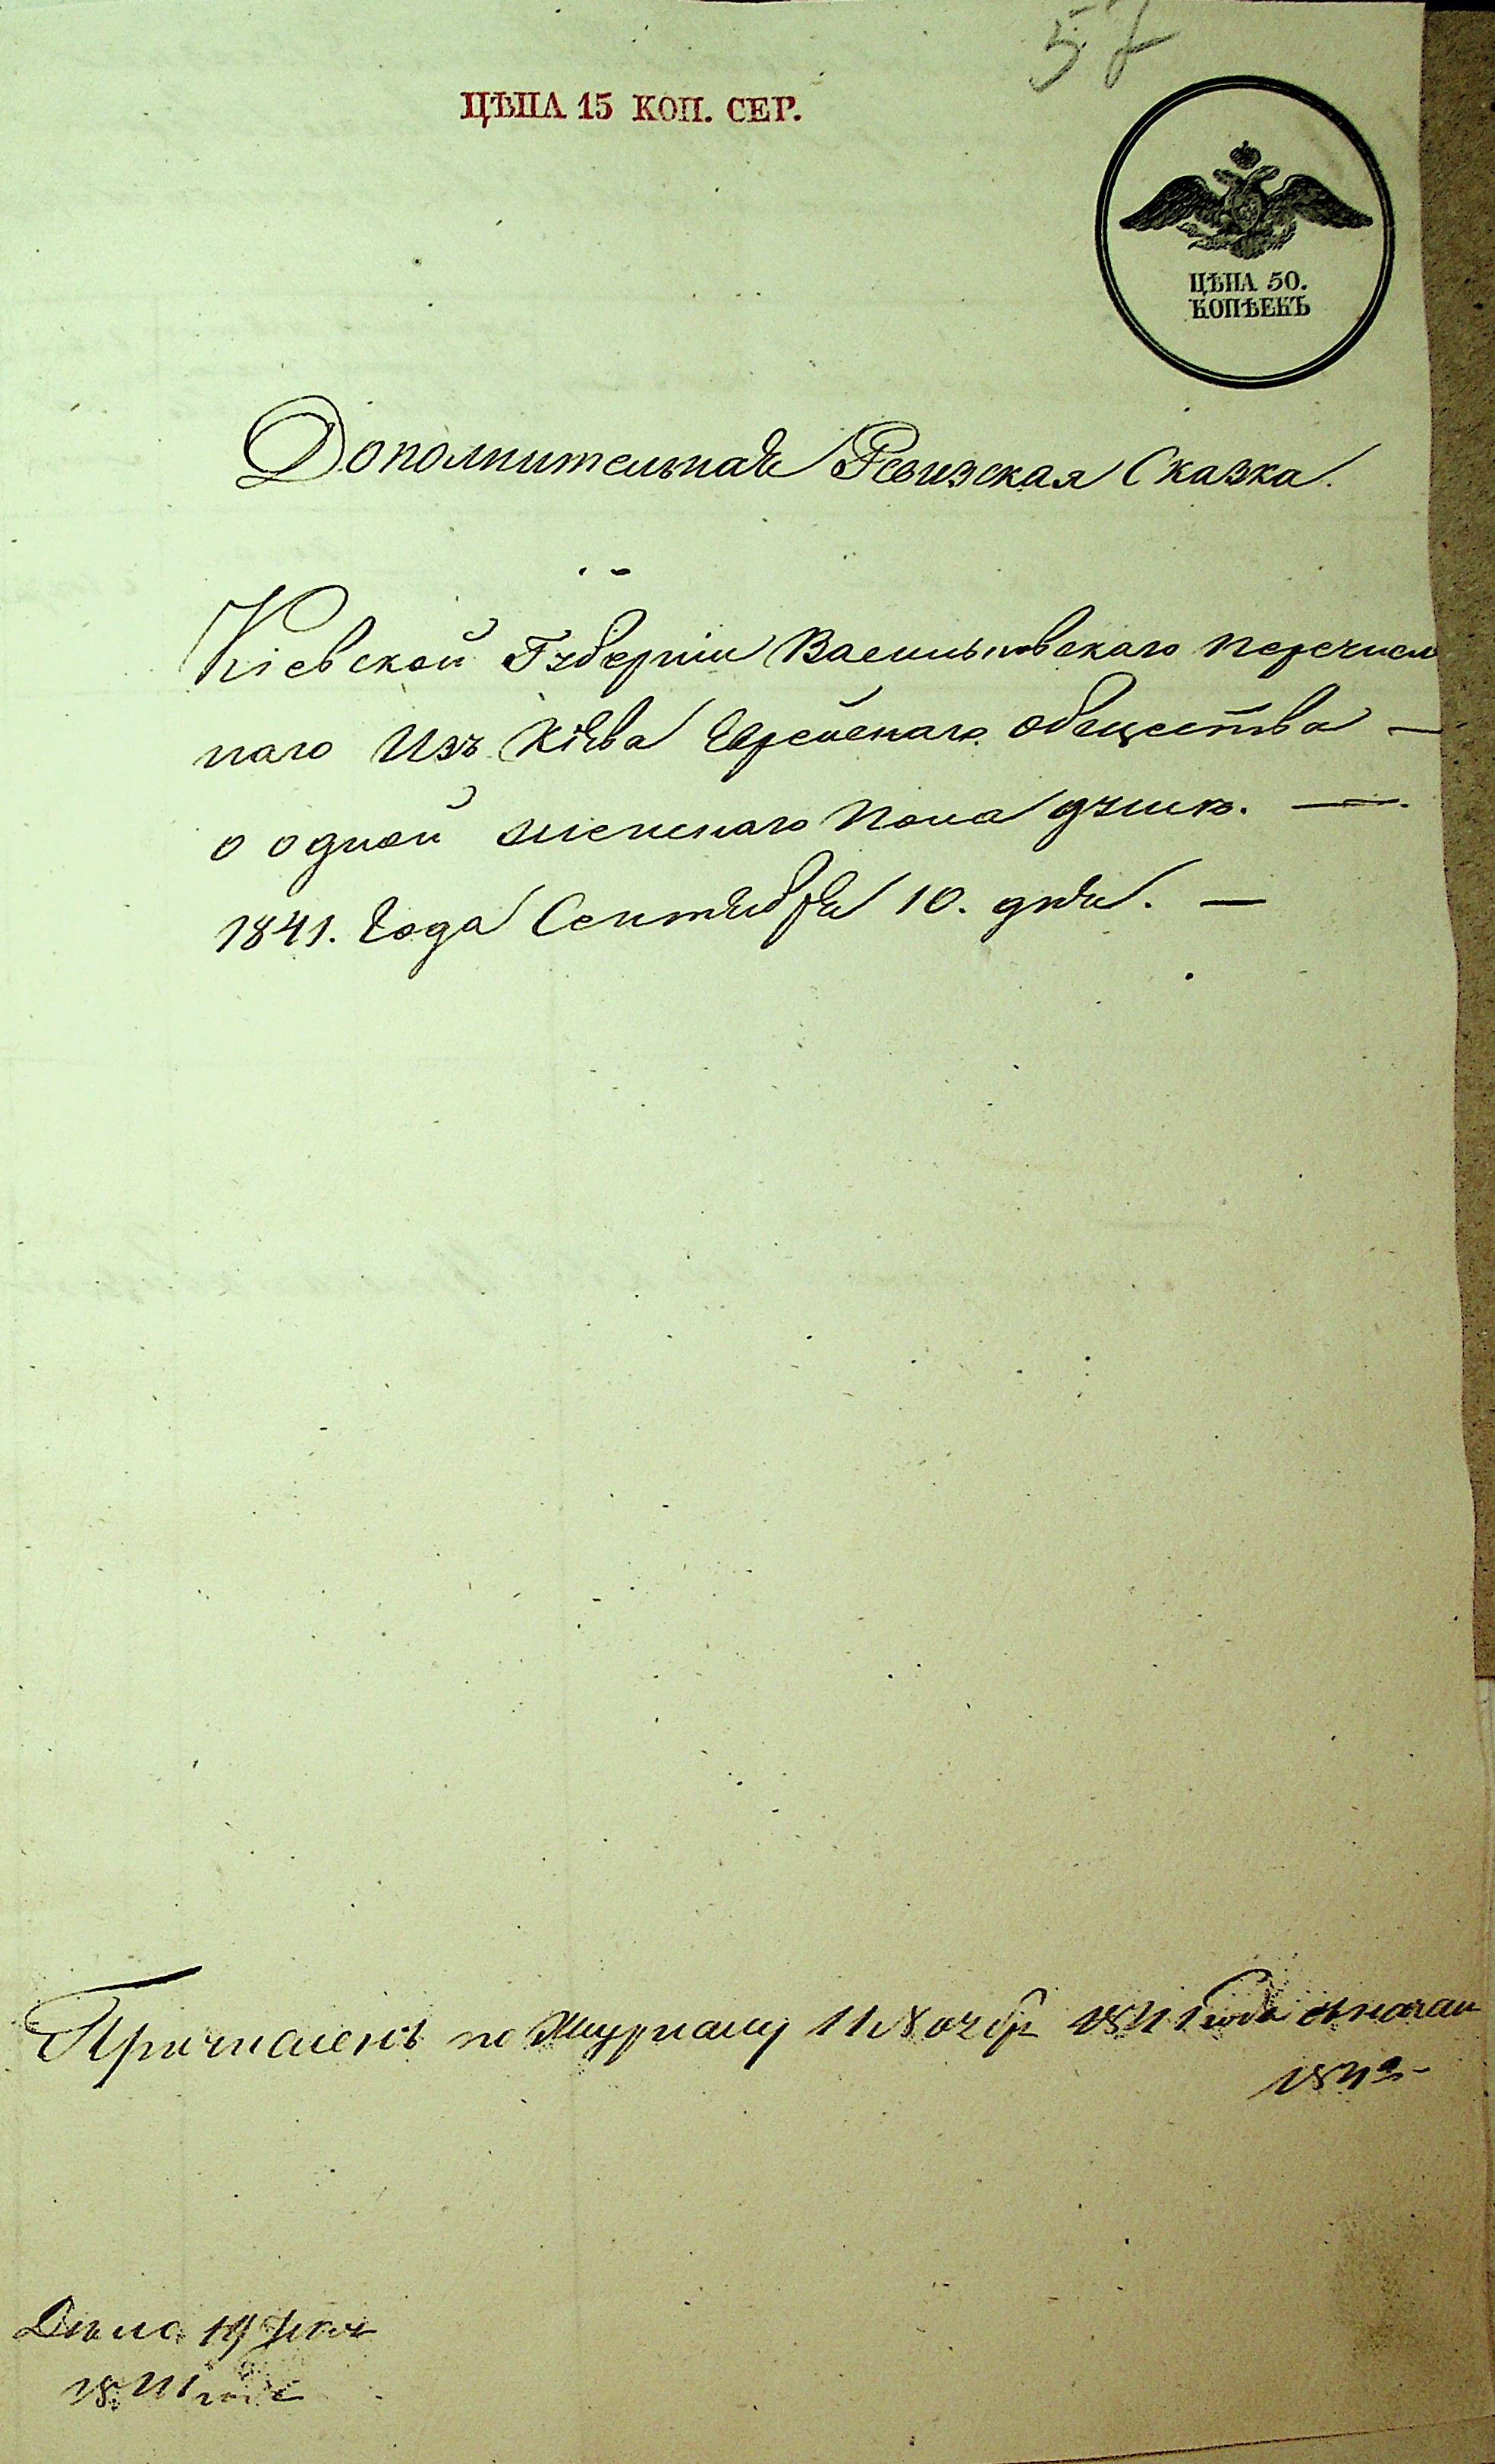 57
ЦѢНА 15 КОП. СЕР.
ЦѢНА 50.
КОПѢЕКЪ
Дополнительная Ревизская Сказка.
Кіевской Губерніи Васильковскаго перечислен
наго Изъ Кіева Еврейскаго общества —
о одной женскаго пола душѣ. —
1841. Года Сентября 10. дня. —
Причисленъ по Журналу 11 Ноябр 1841 года съ начал
184
Дѣло 19
1841 года